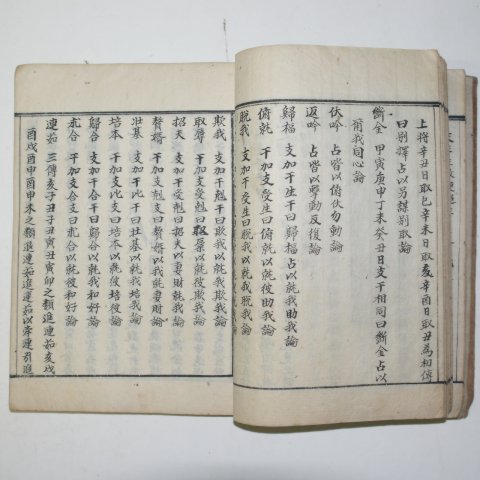 上將辛丑日取巳辛未日取亥辛酉日取丑為初傳
曰別擇占以另謀別取論
斷金 甲寅庚申丁未癸丑日支干相同曰斷金占以
爾我同心論
伏吟 占皆以俯伏勿動論
返吟 占皆以驚動反復論
歸福 支加干生干曰歸福占以就我助我論
俯就 干加支受生曰俯就以就彼助我論
脫我 支加干受生曰脫我以就我脫我論
欺我 支加干尅干曰欺我以就我欺我論
取辱 干加支受尅曰取辱以就彼欺我論
招夫 支加干受尅曰招夫以妻財就我論
贅婿 干加支尅支曰贅婿以我就妻財論
壯基 支加干比干曰壯基以就我培我論
培本 干加支比支曰培本以就彼培彼論
歸合 支加干合干曰歸合以就我和好論
求合 干加支合支曰求合以就彼和好論
連茹 三傳亥子丑子丑寅丑寅卯之類進連茹亥戌
酉戌酉申酉申未之類進連茹進連茹以牽連引進